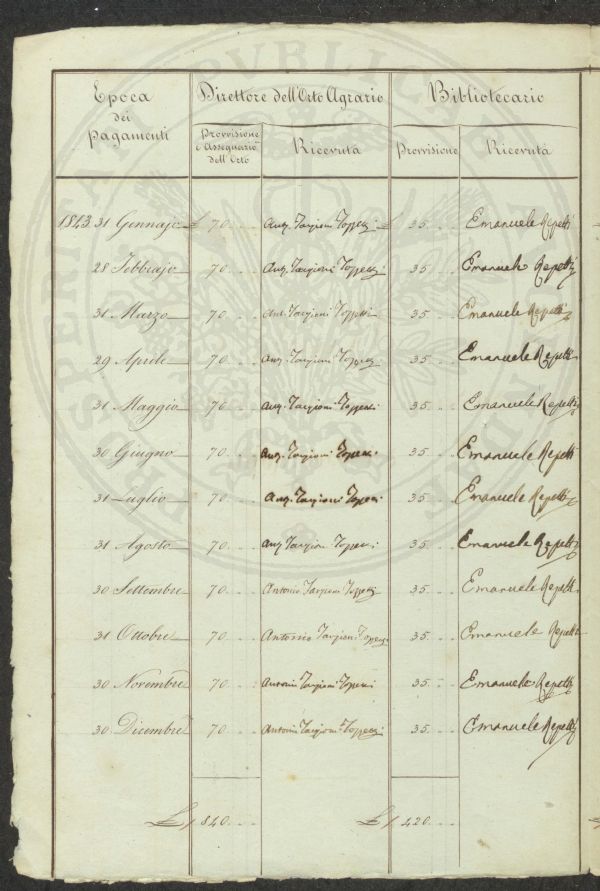 Epoca dei pagamenti
Direttore dell'Orto Agrario
Bibliotecario
Provvisione e Assegnario dell'Orto
Ricevuta
Provvisione
Ricevuta
1843 31 Gennajo £ 70 Ant. Targioni Tozzetti £ 35 Emanuele Repetti
28 Febbrajo 70 Ant. Targioni Tozzetti 35 Emanuele Repetti
31 Marzo 70 Ant. Targioni Tozzetti 35 Emanuele Repetti
29 Aprile 70 Ant. Targioni Tozzetti 35 Emanuele Repetti
31 Maggio 70 Ant. Targioni Tozzetti 35 Emanuele Repetti
30 Giugno 70 Ant. Targioni Tozzetti 35 Emanuele Repetti
31 Luglio 70 Ant. Targioni Tozzetti 35 Emanuele Repetti
31 Agosto 70 Ant. Targioni Tozzetti 35 Emanuele Repetti
30 Settembre 70 Antonio Targioni Tozzetti 35 Emanuele Repetti
31 Ottobre 70 Antonio Targioni Tozzetti 35 Emanuele Repetti
30 Novembre 70 Antonio Targioni Tozzetti 35 Emanuele Repetti
30 Dicembre 70 Antonio Targioni Tozzetti 35 Emanuele Repetti
£ 840 £ 420